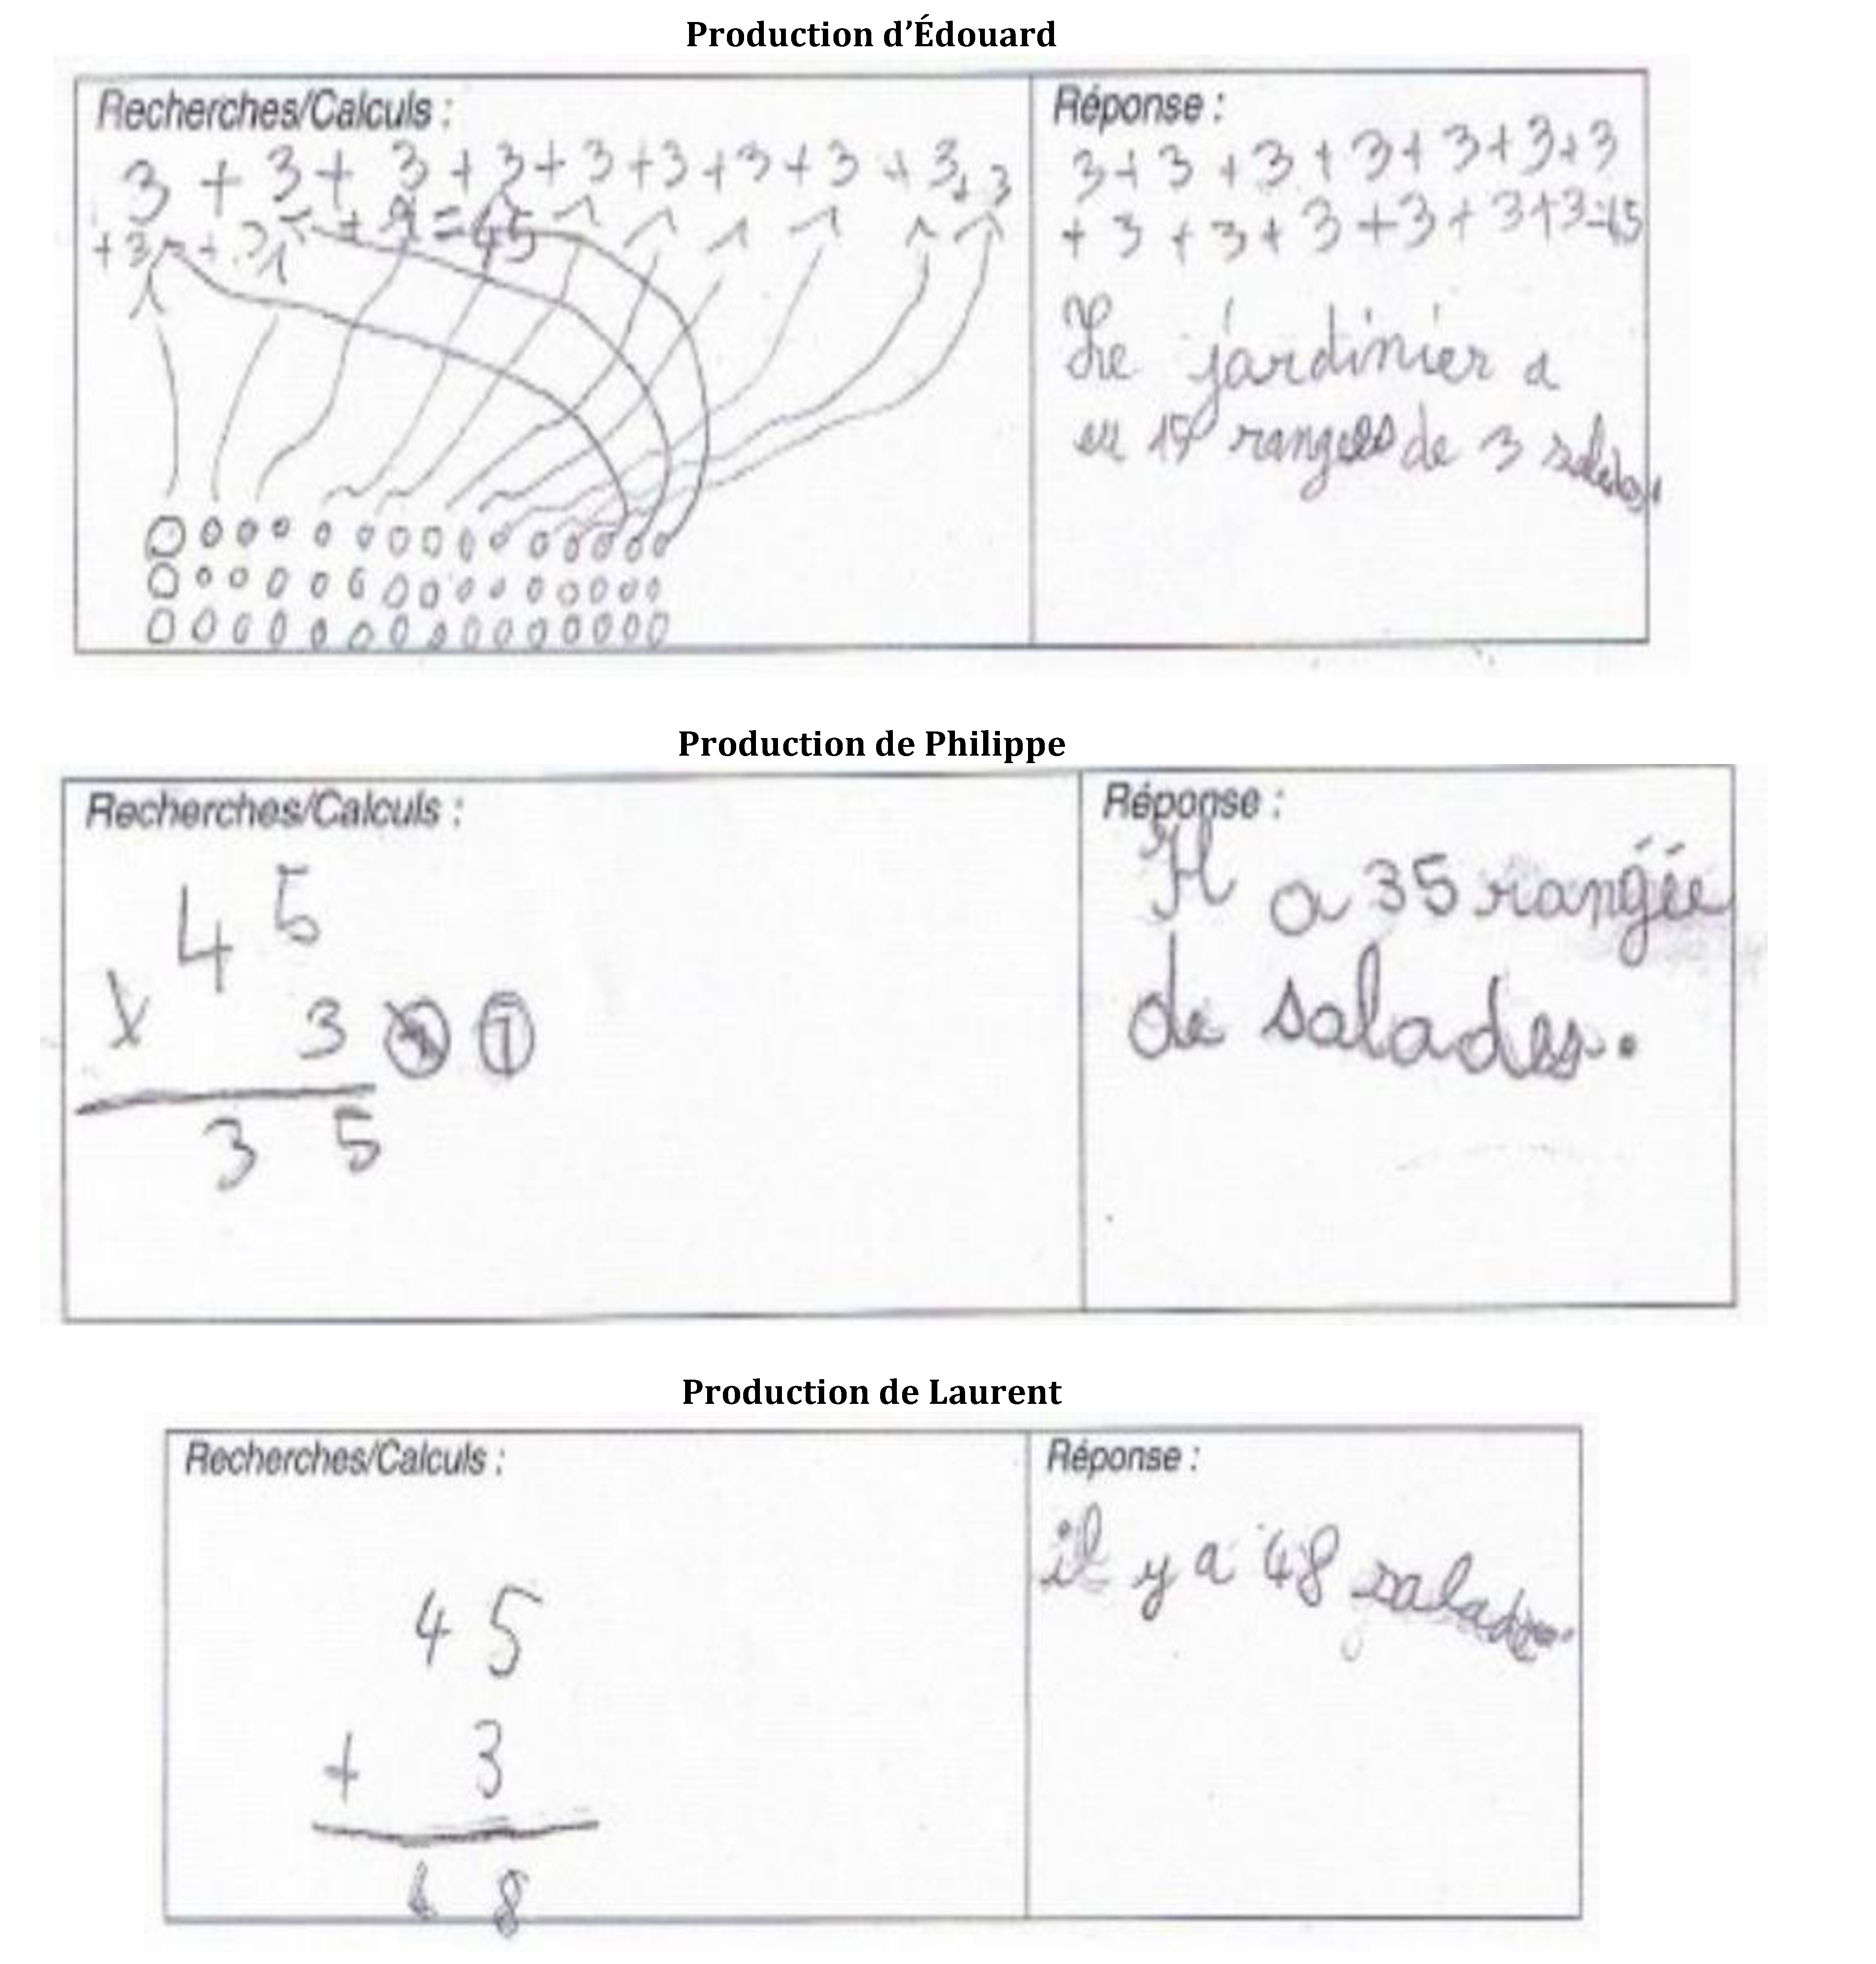 Production d'Édouard
Recherches/Calculs :
3 + 3 + 3 + 3 + 3 + 3 + 3 + 3 + 3 + 3
+ 3 + 3 + = 45
Réponse :
3 + 3 + 3 + 3 + 3 + 3 + 3
+ 3 + 3 + 3 + 3 + 3 + 3 = 45
Le jardinier a
eu 15 rangées de 3 salades.
Production de Philippe
Recherches/Calculs :
4 5
x 3 1
3 5
Réponse :
Il a 35 rangée
de salades.
Production de Laurent
Recherches/Calculs :
4 5
+ 3
4 8
Réponse :
il y a 48 salades.